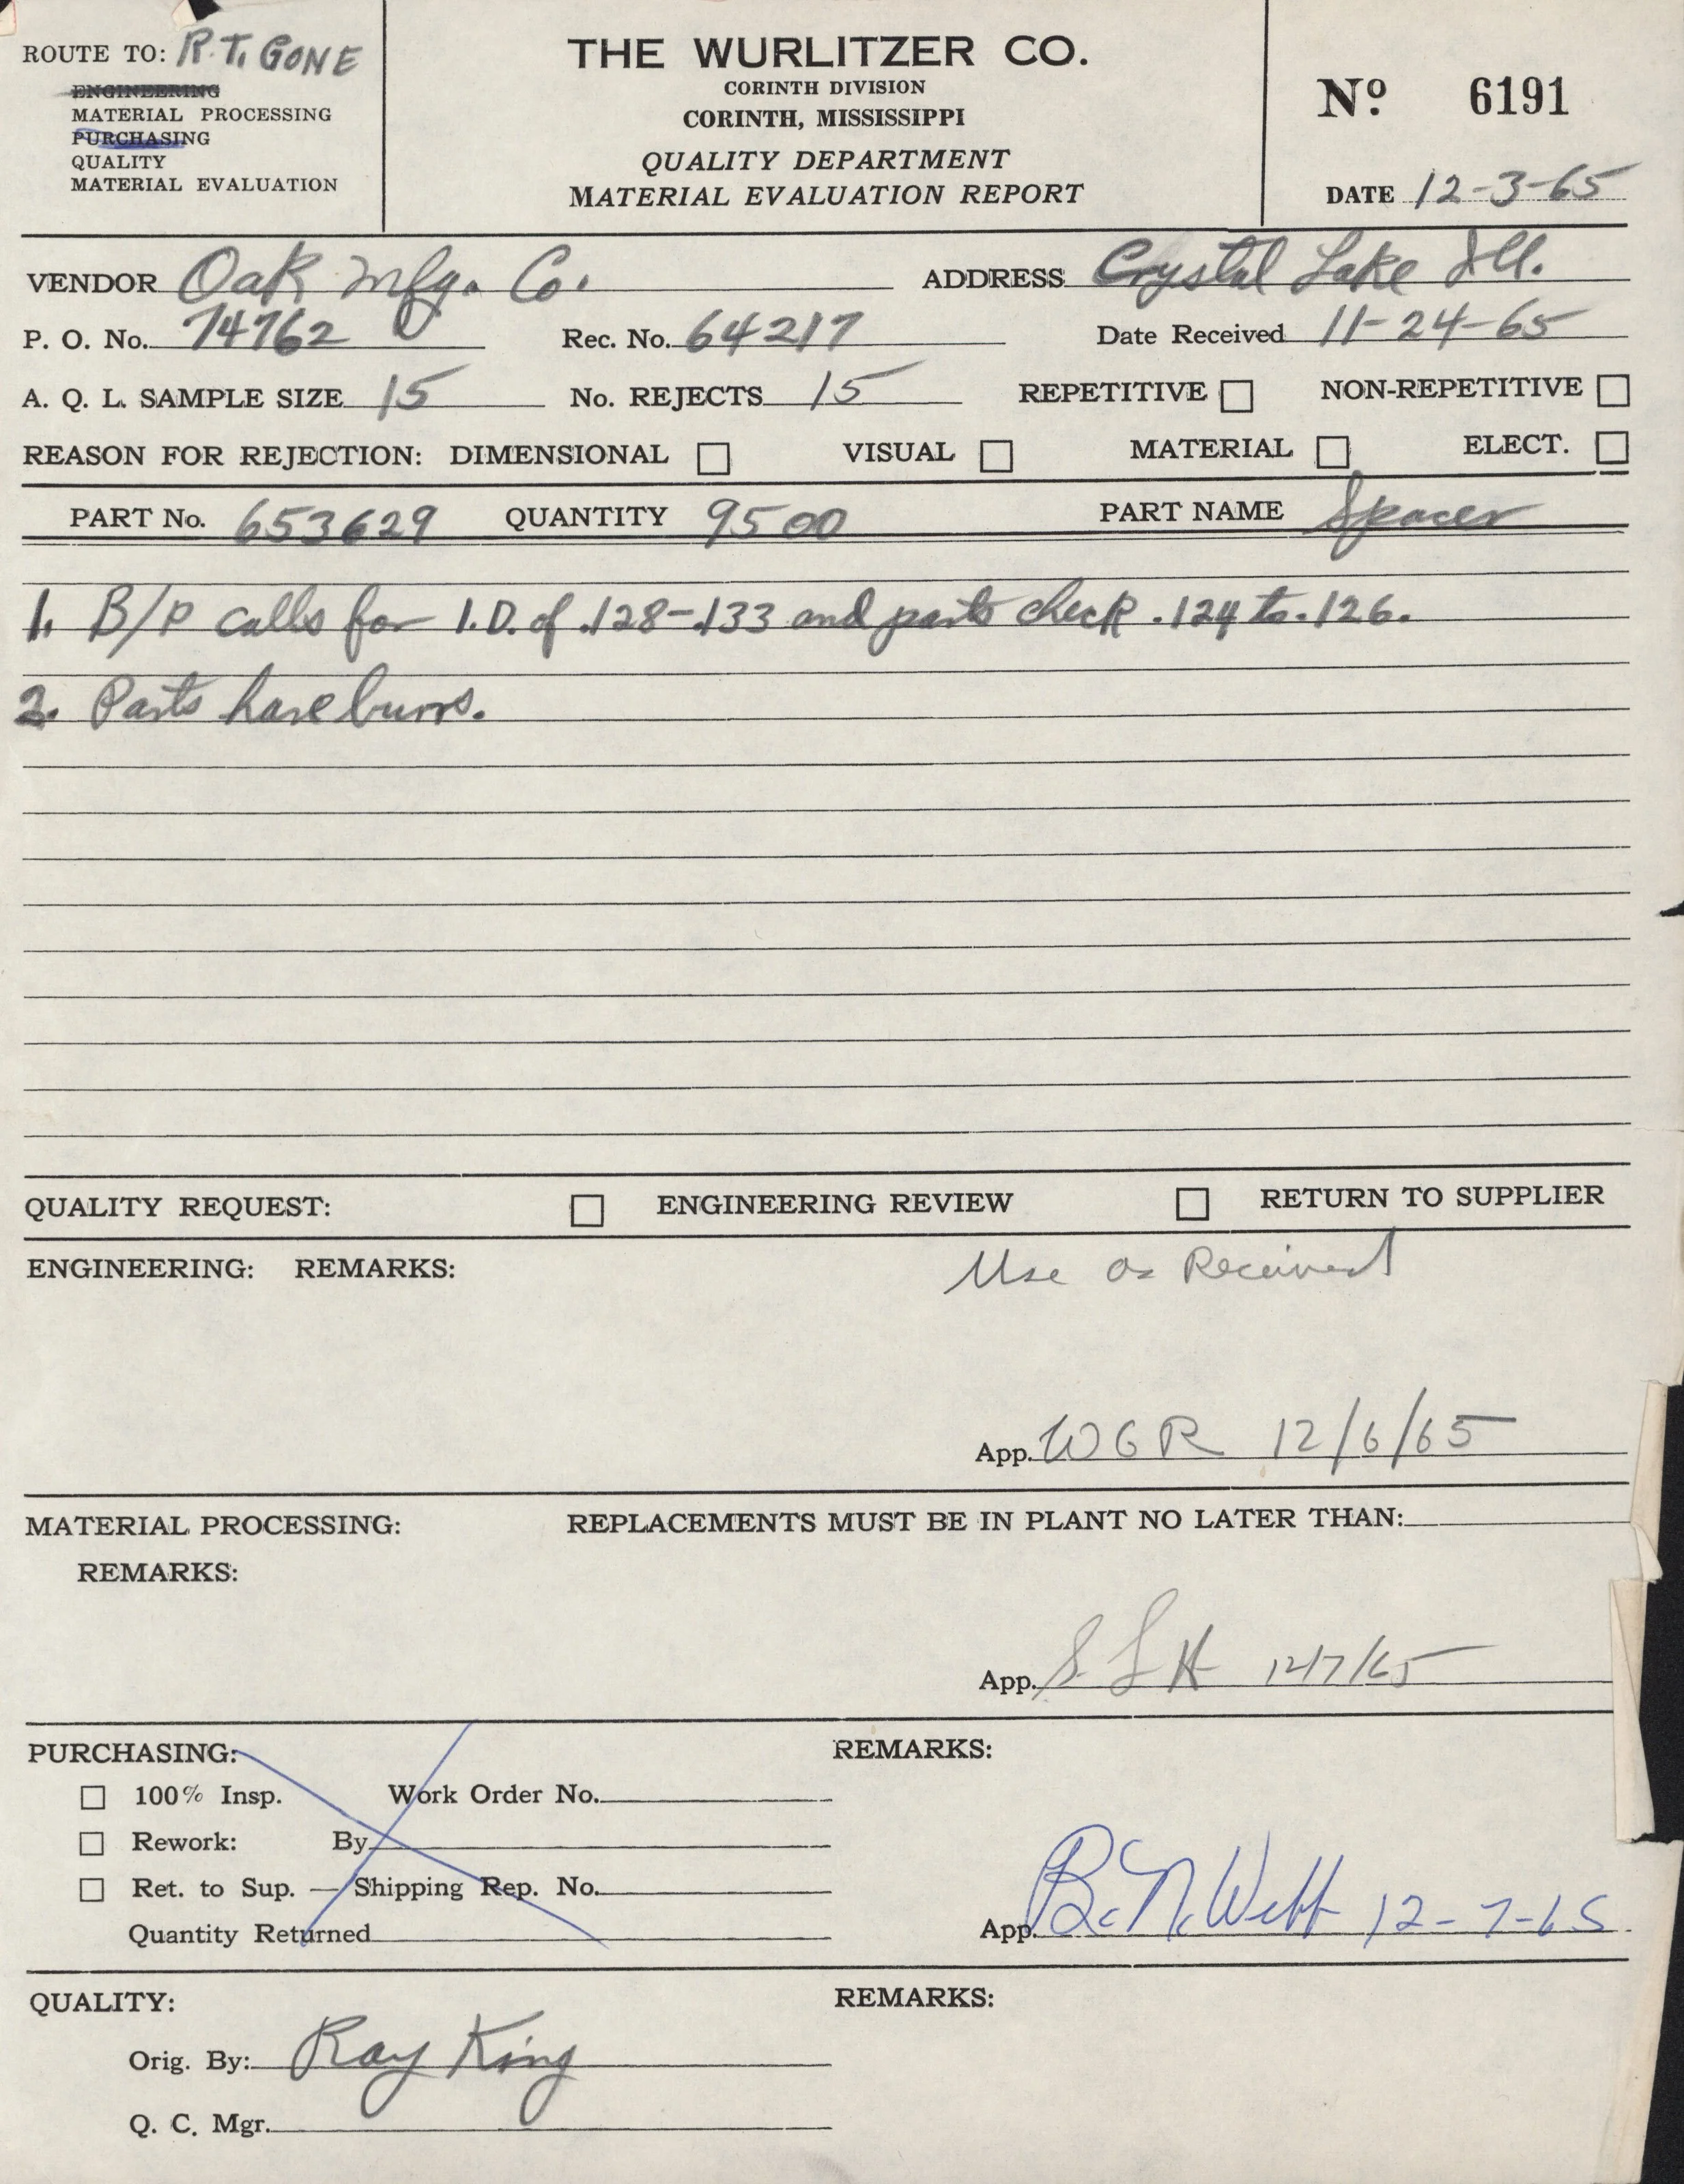 ROUTE TO: R.T. GONE
ENGINEERING
MATERIAL PROCESSING
PURCHASING
QUALITY
MATERIAL EVALUATION
THE WURLITZER CO.
CORINTH DIVISION
CORINTH, MISSISSIPPI
QUALITY DEPARTMENT
MATERIAL EVALUATION REPORT
No. 6191
DATE 12-3-65
VENDOR Oak Mfg. Co. ADDRESS Crystal Lake Ill.
P. O. No. 74762 Rec. No. 64217 Date Received 11-24-65
A. Q. L. SAMPLE SIZE 15 No. REJECTS 15 REPETITIVE ☐ NON-REPETITIVE ☐
REASON FOR REJECTION: DIMENSIONAL ☐ VISUAL ☐ MATERIAL ☐ ELECT. ☐
PART No. 653629 QUANTITY 9500 PART NAME Spacer
1. B/P calls for I.D. of .128-.133 and parts check .124 to .126.
2. Parts have burrs.
QUALITY REQUEST: ☐ ENGINEERING REVIEW ☐ RETURN TO SUPPLIER
ENGINEERING: REMARKS: Use as Received
App. WGR 12/6/65
MATERIAL PROCESSING: REPLACEMENTS MUST BE IN PLANT NO LATER THAN:
REMARKS:
App. S L H 12/7/65
PURCHASING: REMARKS:
☐ 100% Insp. Work Order No.
☐ Rework: By
☐ Ret. to Sup. — Shipping Rep. No.
Quantity Returned
App. B. N. Webb 12-7-65
QUALITY: REMARKS:
Orig. By: Ray King
Q. C. Mgr.